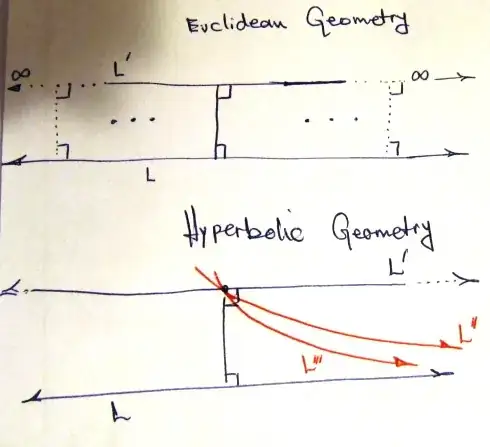 Euclidean Geometry
∞ L' ∞
. . . . . .
L
Hyperbolic Geometry
L'
L''
L'''
L